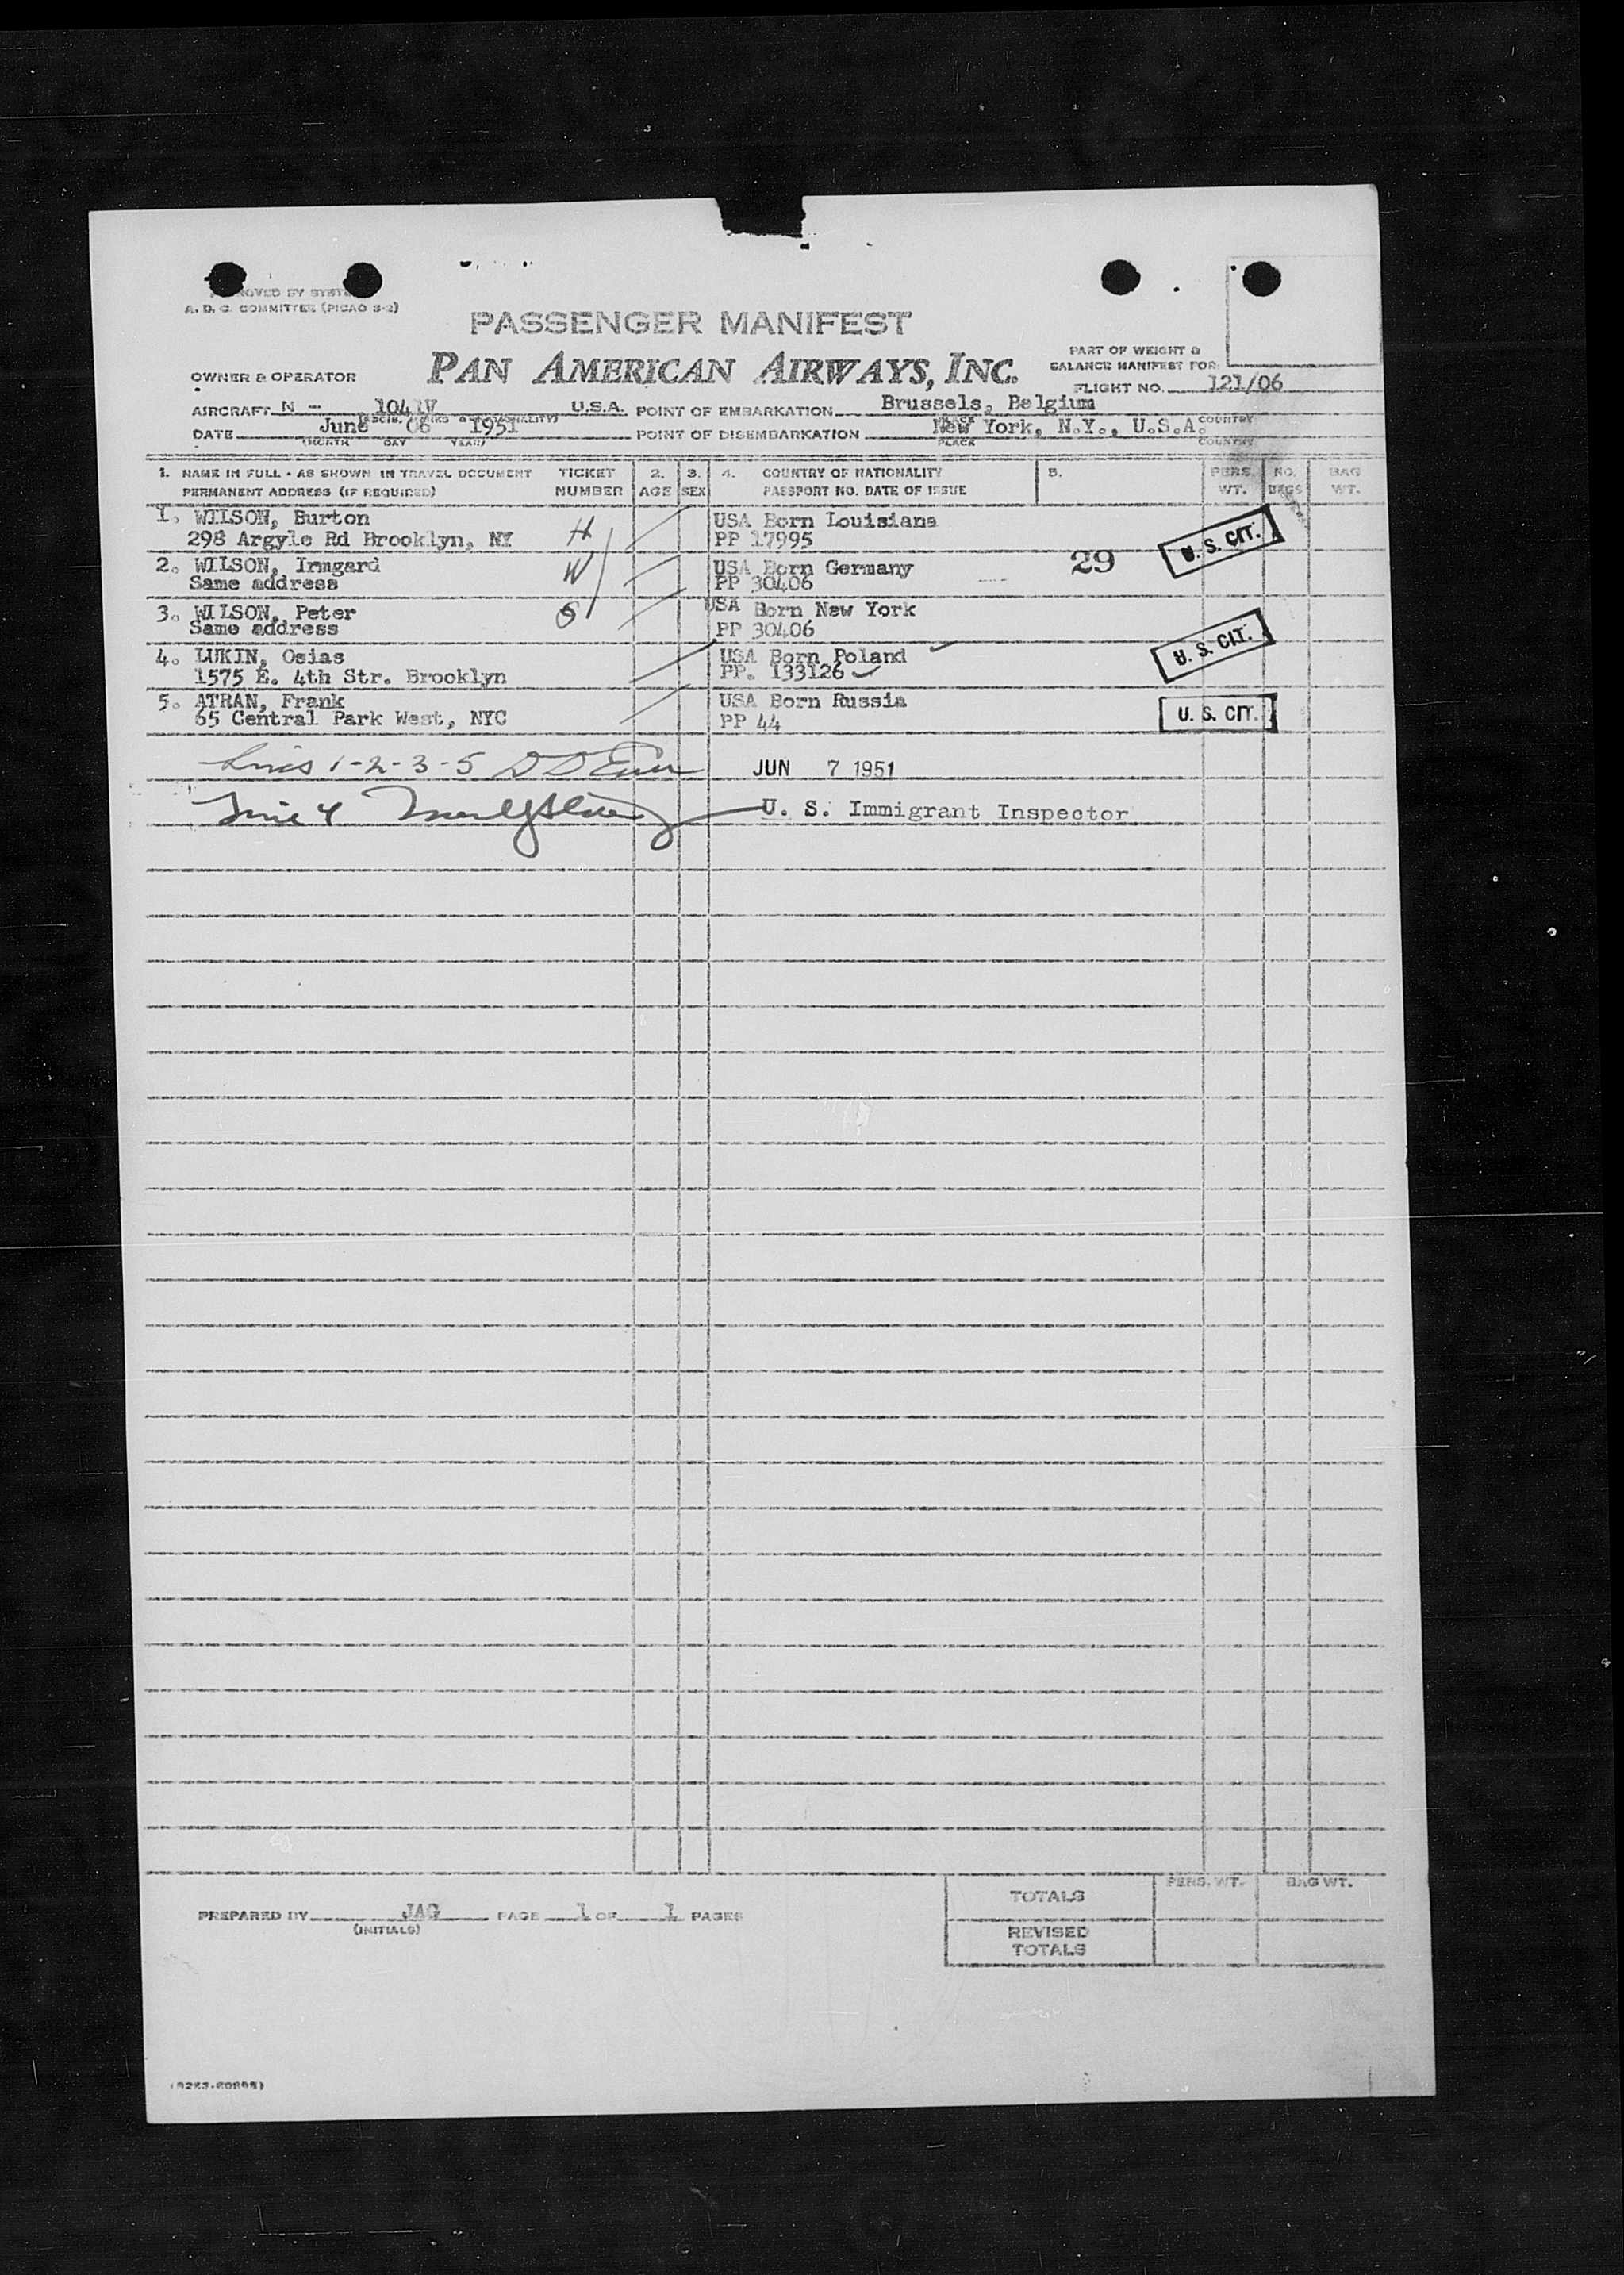 A. D. C. COMMITTEE (PICAO S-2)
PASSENGER MANIFEST
PAN AMERICAN AIRWAYS, INC.
OWNER & OPERATOR
PART OF WEIGHT &
BALANCE MANIFEST FOR
FLIGHT NO. 121/06
AIRCRAFT N - 1041V U.S.A. POINT OF EMBARKATION Brussels, Belgium
DATE June 06 1951 POINT OF DISEMBARKATION New York, N.Y., U.S.A.
(MONTH DAY YEAR) PLACE COUNTRY
1. NAME IN FULL - AS SHOWN IN TRAVEL DOCUMENT TICKET 2. 3. 4. COUNTRY OF NATIONALITY 5. PERS. NO. BAG
PERMANENT ADDRESS (IF REQUIRED) NUMBER AGE SEX PASSPORT NO. DATE OF ISSUE WT. BAGS WT.
1. WILSON, Burton H USA Born Louisiana
298 Argyle Rd Brooklyn, NY PP 17995 U. S. CIT.
2. WILSON, Irmgard W USA Born Germany 29
Same address PP 30406
3. WILSON, Peter S USA Born New York
Same address PP 30406
4. LUKIN, Osias USA Born Poland U. S. CIT.
1575 E. 4th Str. Brooklyn PP. 133126
5. ATRAN, Frank USA Born Russia U. S. CIT.
65 Central Park West, NYC PP 44
Lines 1-2-3-5 JUN 7 1951
Line 4 U. S. Immigrant Inspector
PREPARED BY JAG PAGE 1 OF 1 PAGES
(INITIALS)
PERS. WT. BAG WT.
TOTALS
REVISED
TOTALS